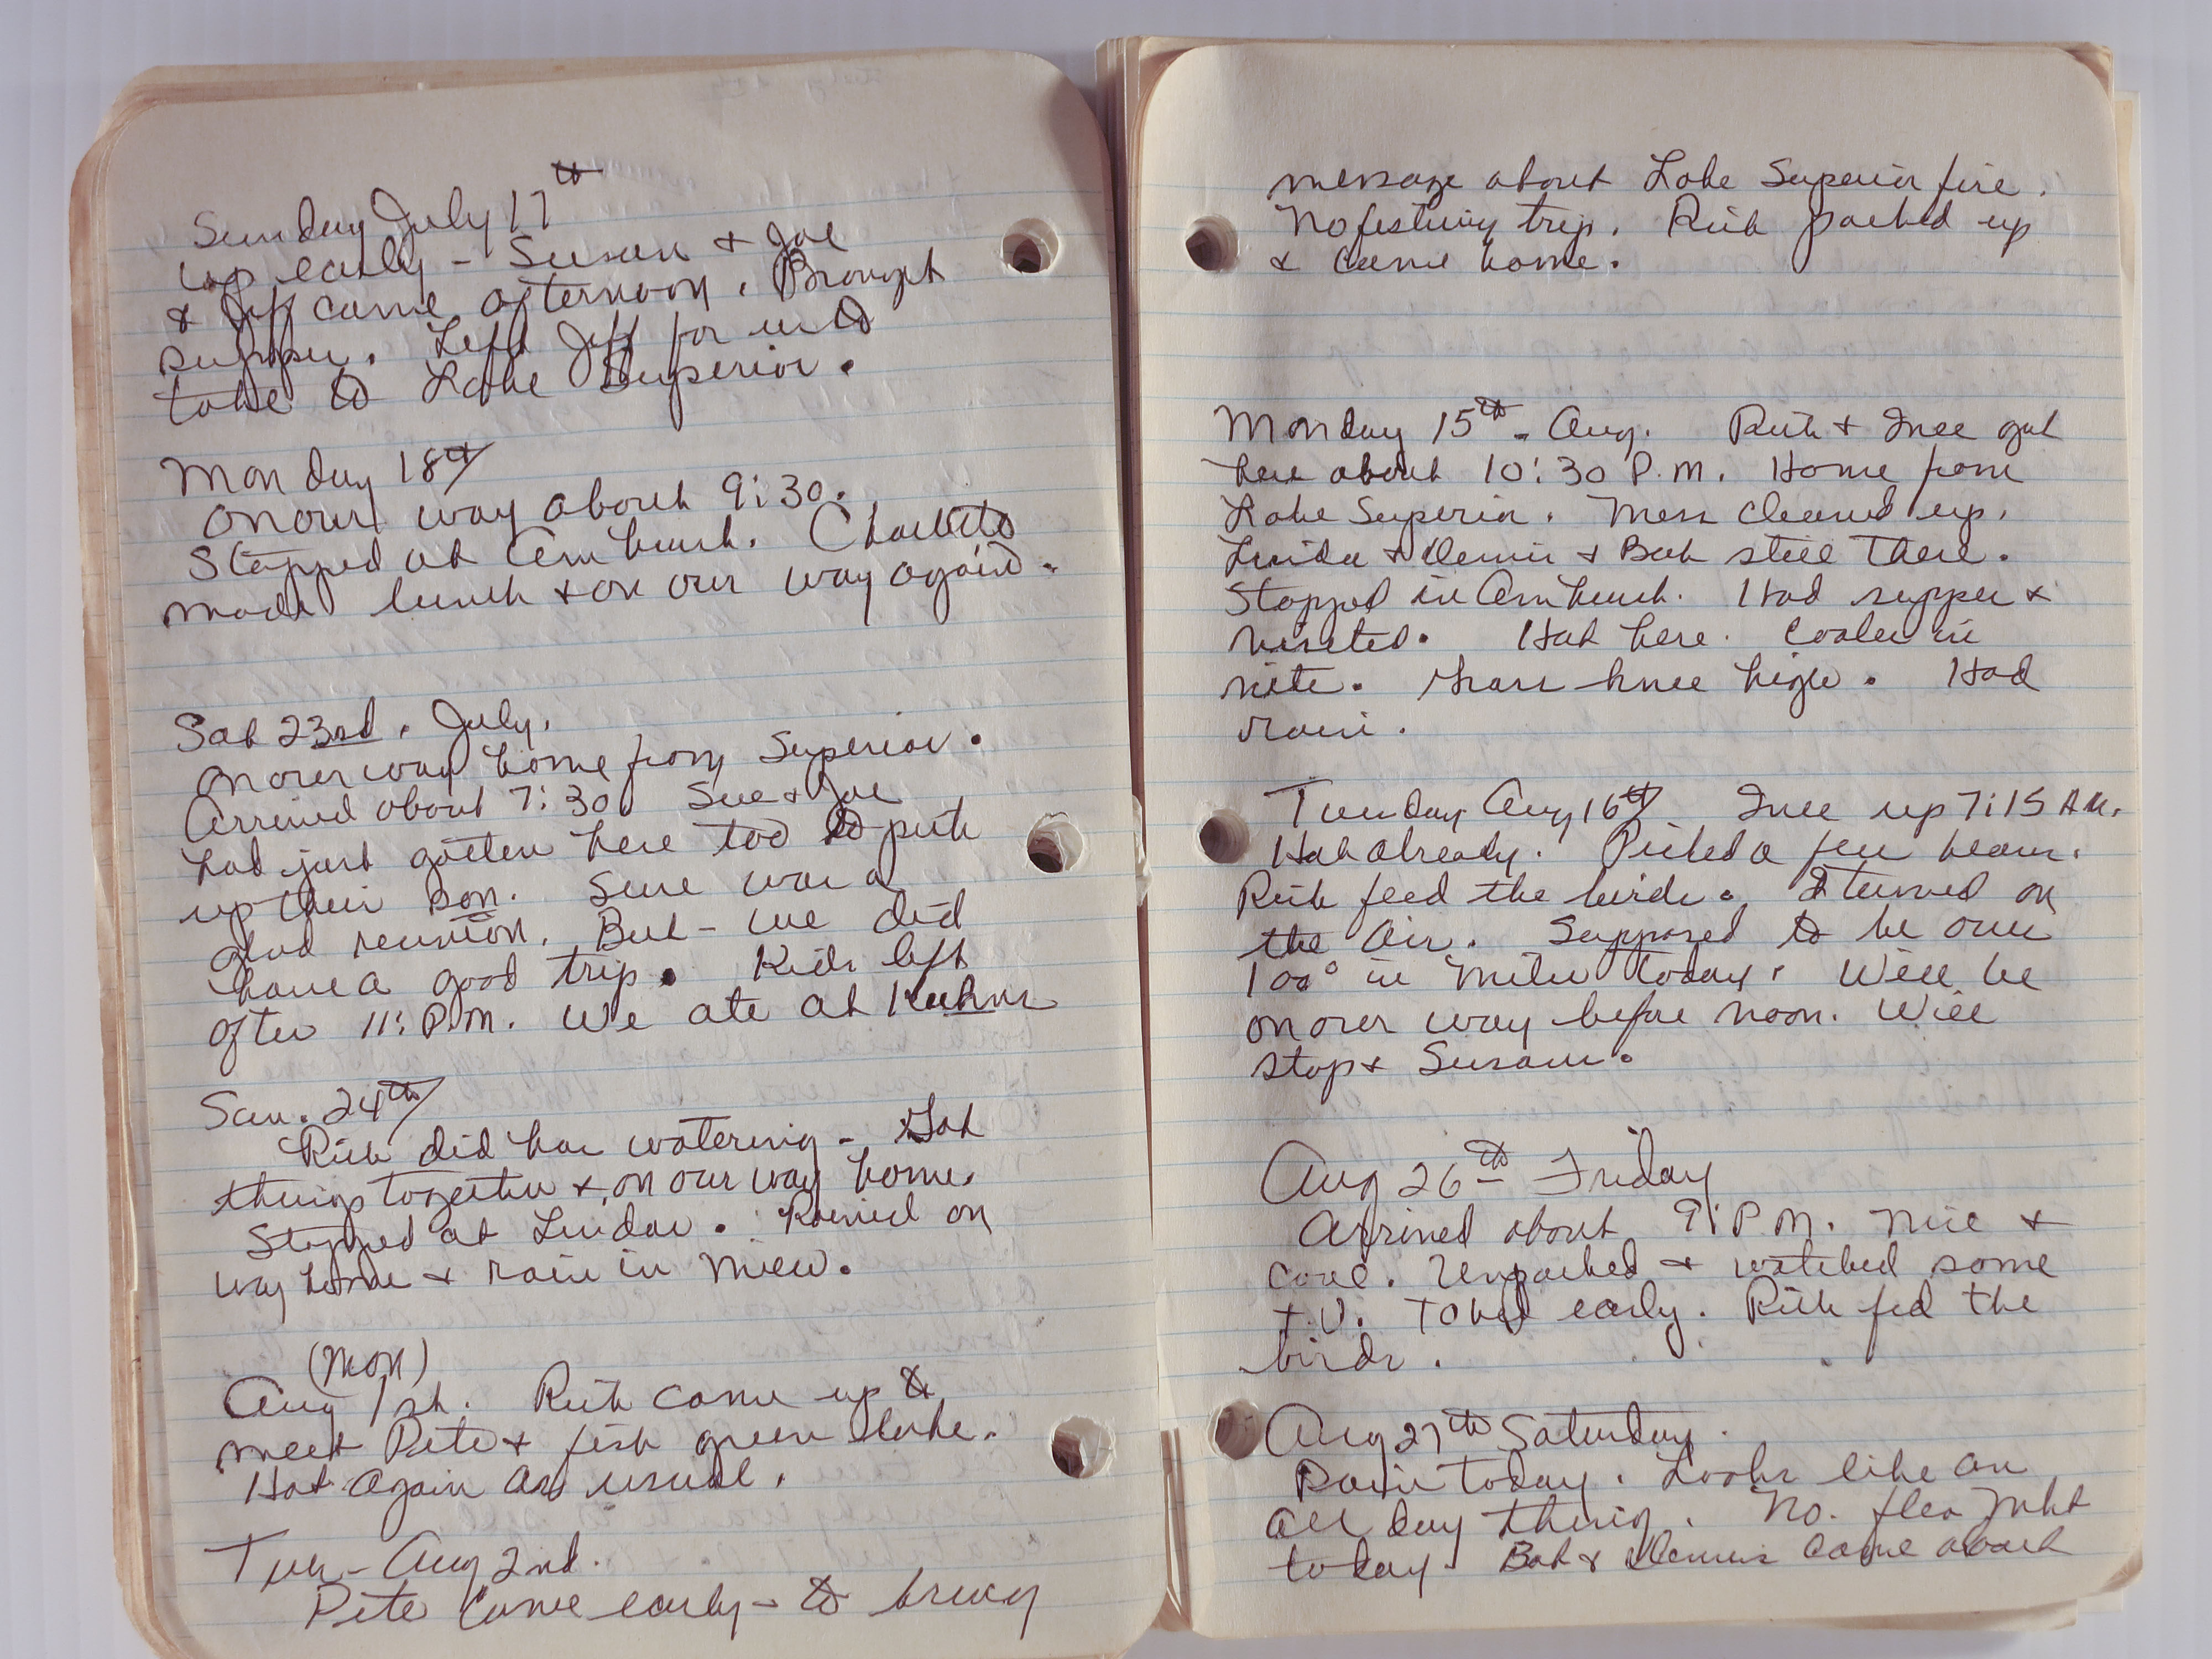 Sunday July 17th
up early - Susan & Joe
& Jeff came afternoon. Brought
supper. Left Jeff for us to
take to Lake Superior.
Monday 18th
on our way about 9:30.
Stopped at Armbrush. Charlotte
made lunch & on our way again.
Sat 23rd. July.
On our way home from Superior.
Arrived about 7:30 Sue & Joe
had just gotten here too to pick
up their son. Sure was a
glad reunion. But - we did
have a good trip. Kids left
after 11: P.M. We ate at Kuhns
Sun. 24th
Rich did his watering - Got
things together & on our way home.
Stopped at Lindas. Rained on
way home & rain in Milw.
(Mon)
Aug 1st. Rich came up to
meet Pete & fish green lake.
Hot again as usual.
Tues - Aug 2nd.
Pete came early - to bring
message about Lake Superior fire.
No fishing trip. Rich packed up
& came home.
Monday 15th - Aug. Rich & Inee got
here about 10:30 P.M. Home from
Lake Superior. Mess cleaned up.
Linda & Dennis & Bob still there.
Stopped in Armbrush. Had supper &
visited. Hot here. Cooler in
nite. Grass knee high. Had
rain.
Tuesday Aug 16th Inee up 7:15 A.M.
Hot already. Picked a few beans.
Rich feed the birds. I turned on
the Air. Supposed to be over
100° in Milw today. Will be
on our way before noon. Will
stop & Susans.
Aug 26th - Friday
Arrived about 9: P.M. Nice &
cool. Unpacked & watched some
T.V. To bed early. Rich fed the
birds.
Aug 27th Saturday.
Rain today. Looks like an
all day thing. No. flea mkt
today. Bob & Dennis came about